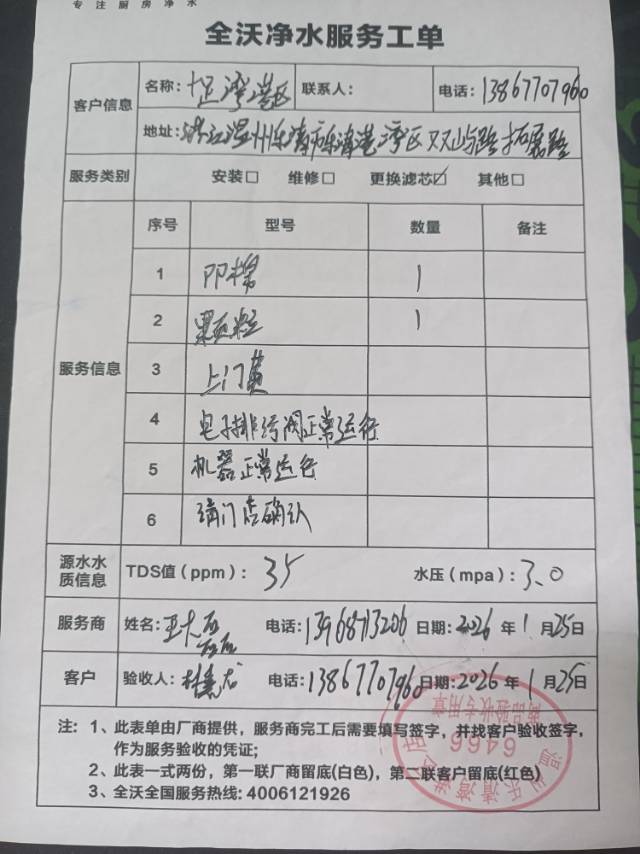 专注厨房净水
全沃净水服务工单
客户信息 名称: 湾港区 联系人: 电话: 13867707960
地址: 浙江温州乐清市乐清港湾区双屿路拓展路
服务类别 安装□ 维修□ 更换滤芯☑ 其他□
服务信息 序号 型号 数量 备注
1 PP棉 1
2 颗粒 1
3 上门费
4 电子排污阀正常运行
5 机器正常运行
6 请门店确认
源水水质信息 TDS值（ppm）: 35 水压（mpa）: 3.0
服务商 姓名: 电话: 13968713206 日期: 2026 年 1 月 25 日
客户 验收人: 林 龙 电话: 13867707960 日期: 2026 年 1 月 25 日
注: 1、此表单由厂商提供，服务商完工后需要填写签字，并找客户验收签字，
作为服务验收的凭证;
2、此表一式两份，第一联厂商留底(白色)，第二联客户留底(红色)
3、全沃全国服务热线: 4006121926
商品验收专用章
6466